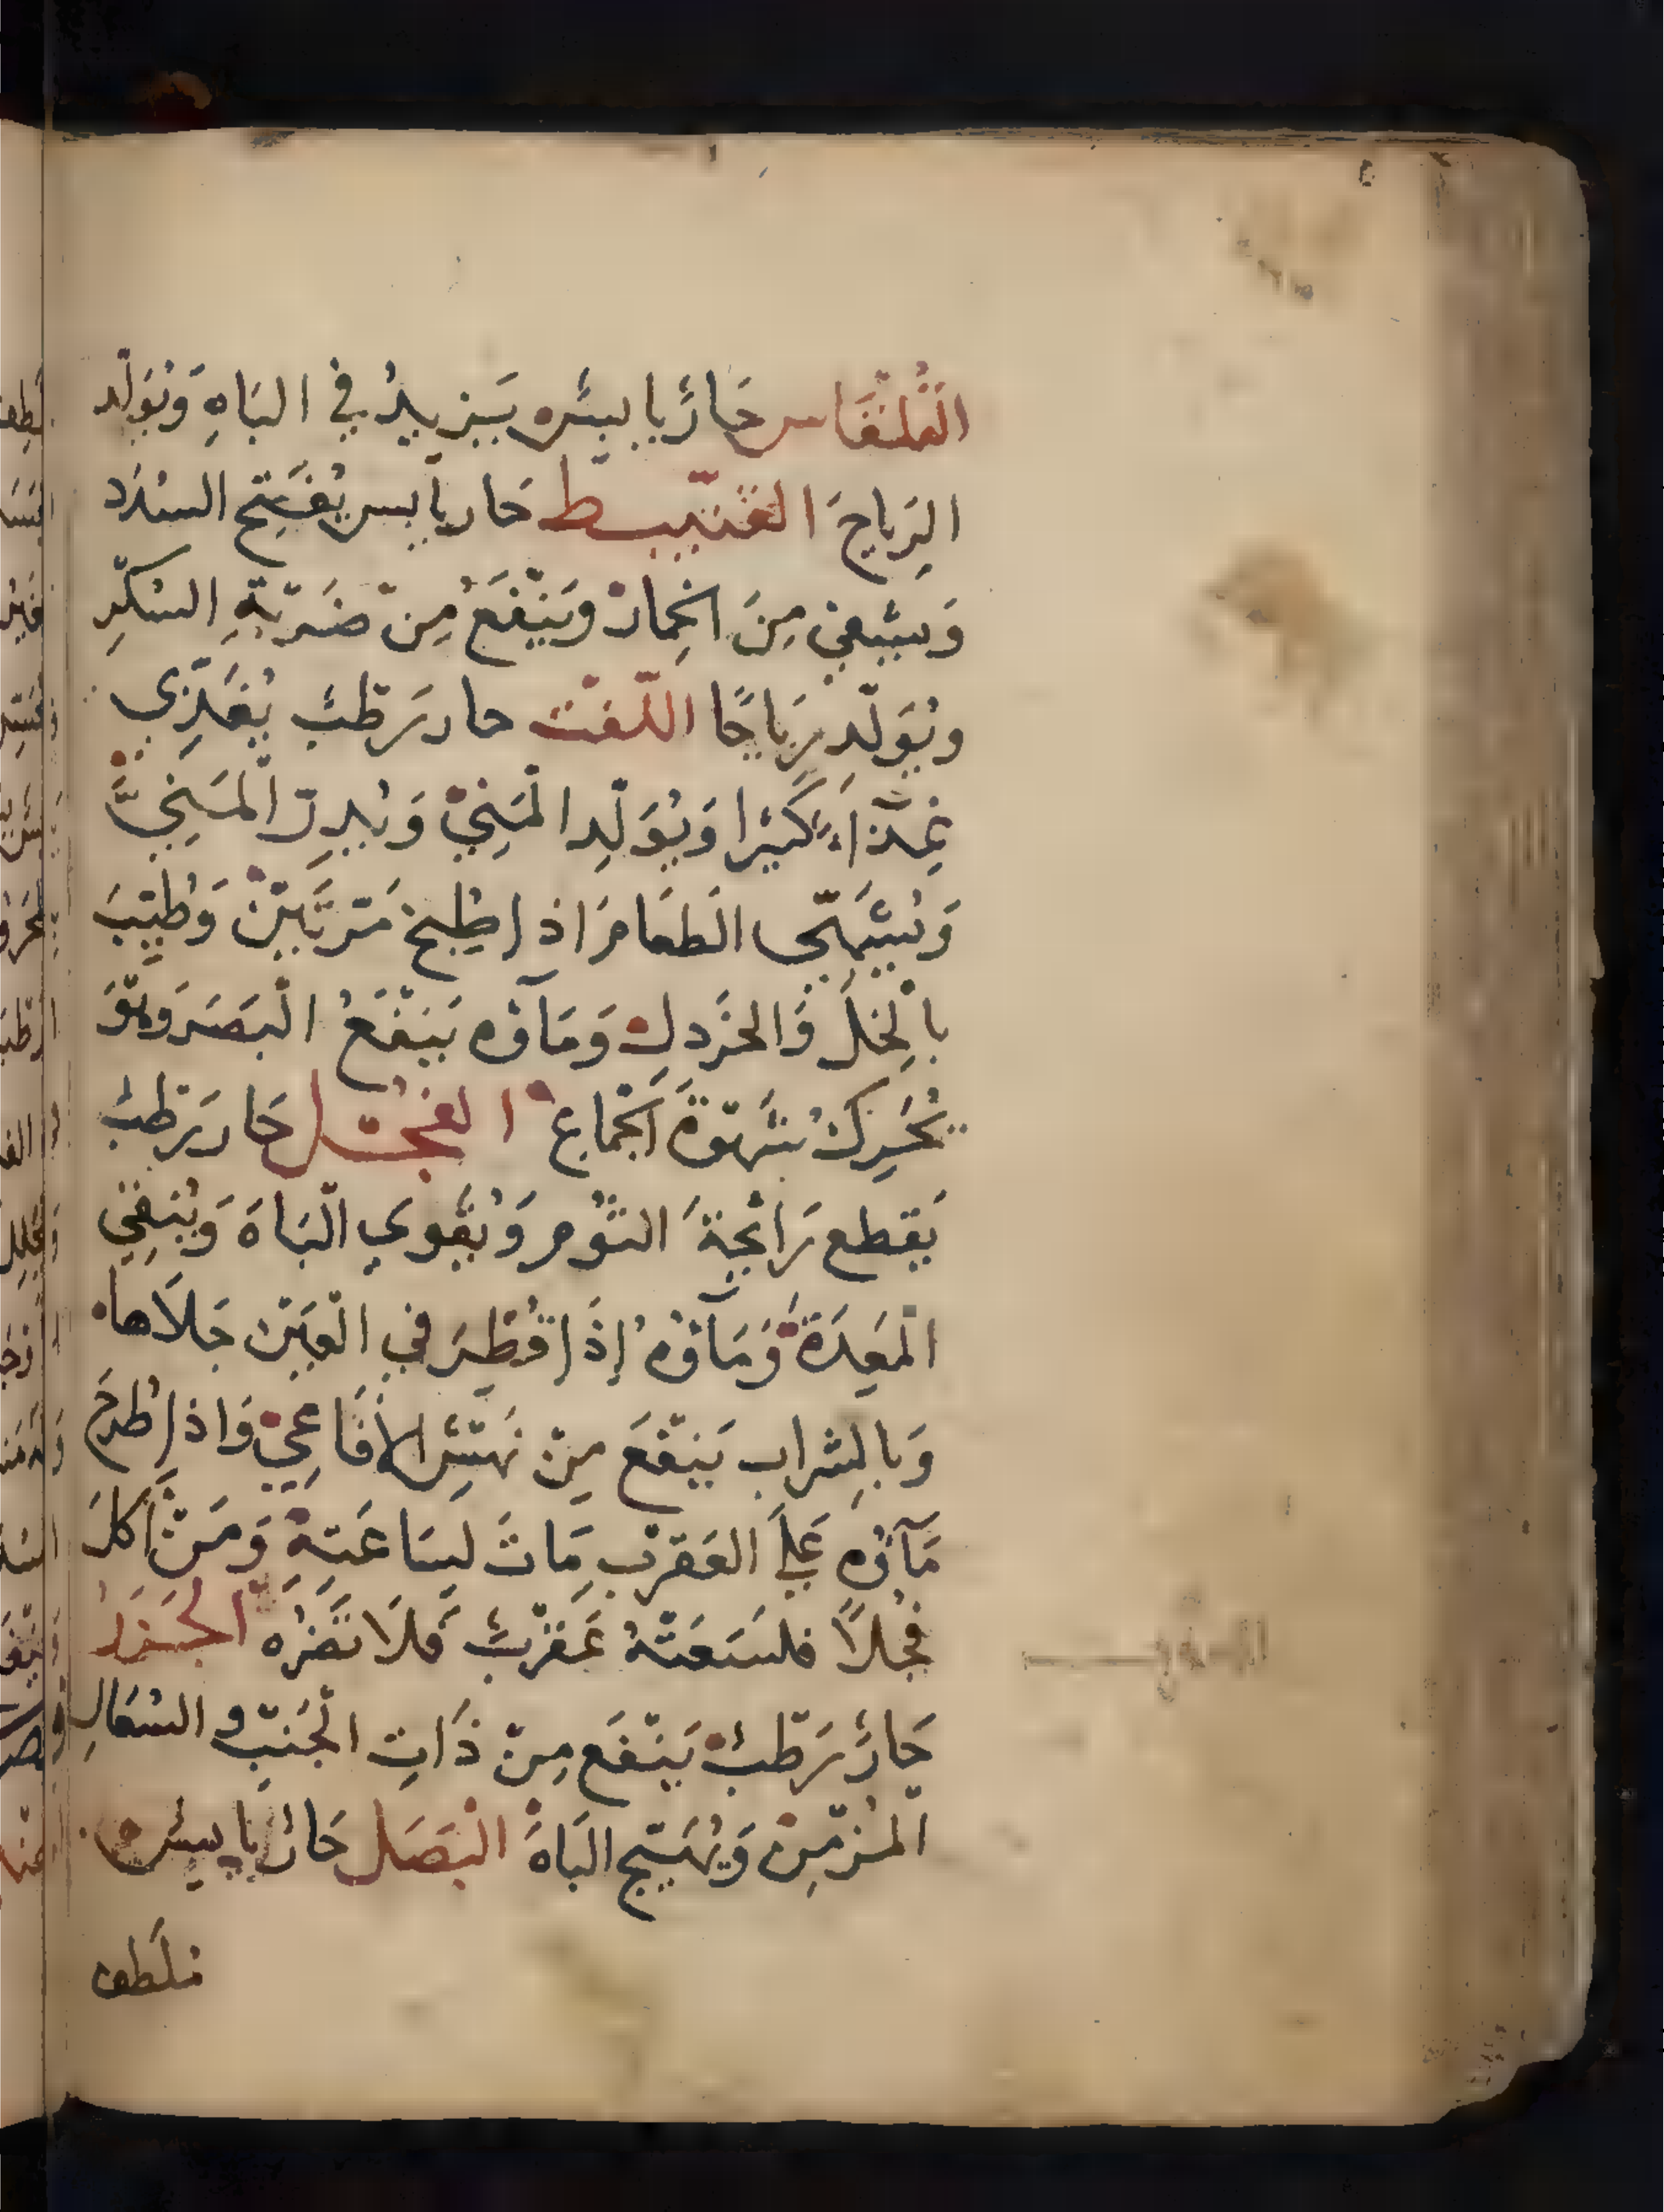 القُلْقَاس حَارٌ يَابِسٌ يَزِيدُ في البَاهِ وَيُوَلّد
الرِيَاحَ القنّبِيط حَار يَابس يُفَتِح السُدَد
وَيَشْفِي مِنَ الخِمَارْ وَيَنْفَعُ مِنْ ضَرَبَةِ السُكّرِ
وَيُوَلّدِ رِيَاحًا اللّفْت حار رَطْبٌ يُغَذِّي
غِذآءً كَثِيْرا وَيُوَلّدِ الْمَنِيّ وَيُدِرّ الْمَنِيَّ
وَيُشَهِّى الطَعَامَ اذا طُبِخَ مَرّتَيْنْ وَطُيِّبَ
بالْخِلّ وَالخَردِلِ وَمَآؤه يَنْفَعُ الْبَصَرَ وَهْوَ
يُحَرِكُ شَهْوَةَ الْجِمَاع الفُجْل حَار رَطْبٌ
يَقطع رَائِحَةَ الثُوم وَيُقَوي الْبَاهَ وَيُنَقِي
الْمَعِدَةْ وَمَآؤهُ إِذَا قُطِرَ فِي الْعَيْن جَلَاها
وَبالِشراب يَنْفَعَ مِنْ نَهْشِ الأَفَاعِيْ وَاذا طُرحَ
مَآؤه عَلَى العَقرَبِ مَاتَ لِسَاعَتِهِ وَمَنْ أَكَلَ
فُجْلاً فلسَعَتْهُ عَقْرَبٌ فَلَا تَضُرُه الجَزَرُ
حَارٌ رَطْبٌ يَنْفَع مِنْ ذَاتِ الْجَنْبِ والسُعَالِ
الْمُزْمِنْ وَيُهَيّج البَاهَ الْبَصَل حَارٌ يَابِسٌ
مُلَطف